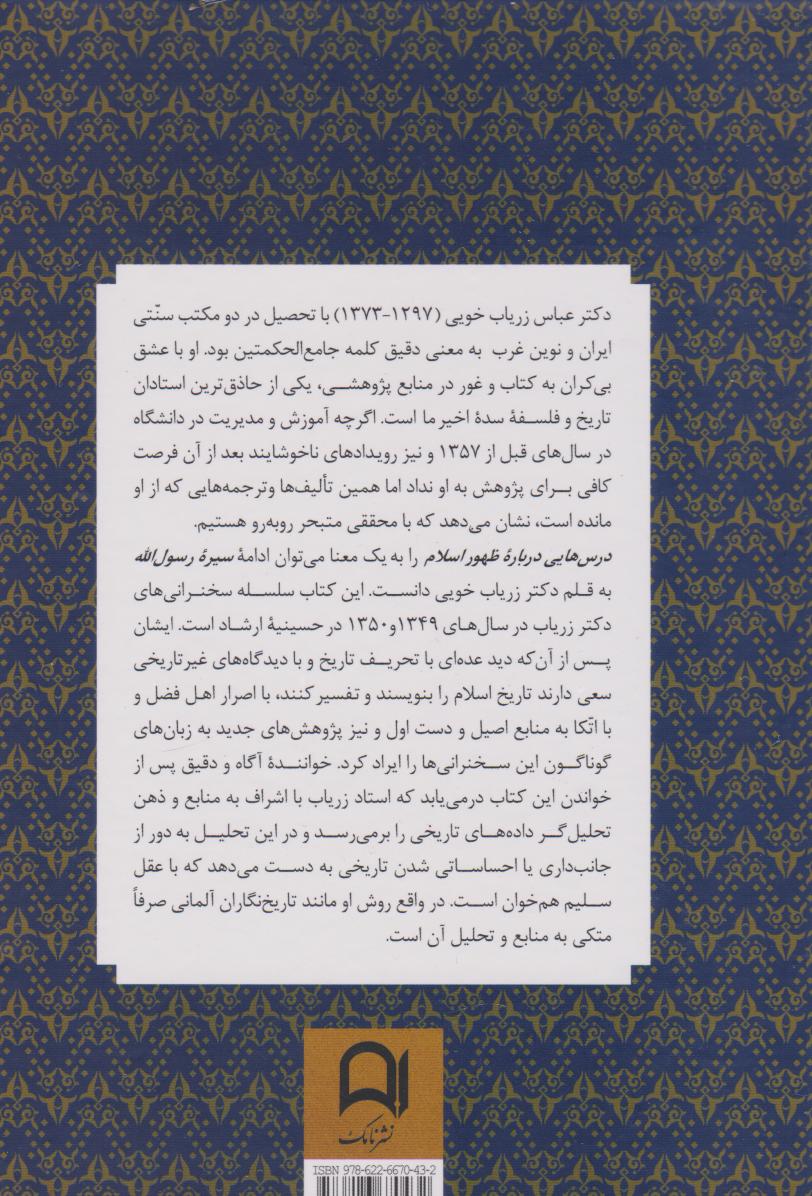 دکتر عباس زریاب خویی (۱۲۹۷-۱۳۷۳) با تحصیل در دو مکتب سنّتی
ایران و نوین غرب به معنی دقیق کلمه جامع‌الحکمتین بود. او با عشق
بی‌کران به کتاب و غور در منابع پژوهشی، یکی از حاذق‌ترین استادان
تاریخ و فلسفهٔ سدهٔ اخیر ما است. اگرچه آموزش و مدیریت در دانشگاه
در سال‌های قبل از ۱۳۵۷ و نیز رویدادهای ناخوشایند بعد از آن فرصت
کافی برای پژوهش به او نداد اما همین تألیف‌ها وترجمه‌هایی که از او
مانده است، نشان می‌دهد که با محققی متبحر روبه‌رو هستیم.
درس‌هایی دربارهٔ ظهور اسلام را به یک معنا می‌توان ادامهٔ سیرهٔ رسول‌الله
به قلم دکتر زریاب خویی دانست. این کتاب سلسله سخنرانی‌های
دکتر زریاب در سال‌های ۱۳۴۹و۱۳۵۰ در حسینیهٔ ارشاد است. ایشان
پس از آن‌که دید عده‌ای با تحریف تاریخ و با دیدگاه‌های غیرتاریخی
سعی دارند تاریخ اسلام را بنویسند و تفسیر کنند، با اصرار اهل فضل و
با اتّکا به منابع اصیل و دست اول و نیز پژوهش‌های جدید به زبان‌های
گوناگون این سخنرانی‌ها را ایراد کرد. خوانندهٔ آگاه و دقیق پس از
خواندن این کتاب درمی‌یابد که استاد زریاب با اشراف به منابع و ذهن
تحلیل‌گر داده‌های تاریخی را برمی‌رسد و در این تحلیل به دور از
جانب‌داری یا احساساتی شدن تاریخی به دست می‌دهد که با عقل
سلیم هم‌خوان است. در واقع روش او مانند تاریخ‌نگاران آلمانی صرفاً
متکی به منابع و تحلیل آن است.
نشر نامک
ISBN 978-622-6670-43-2